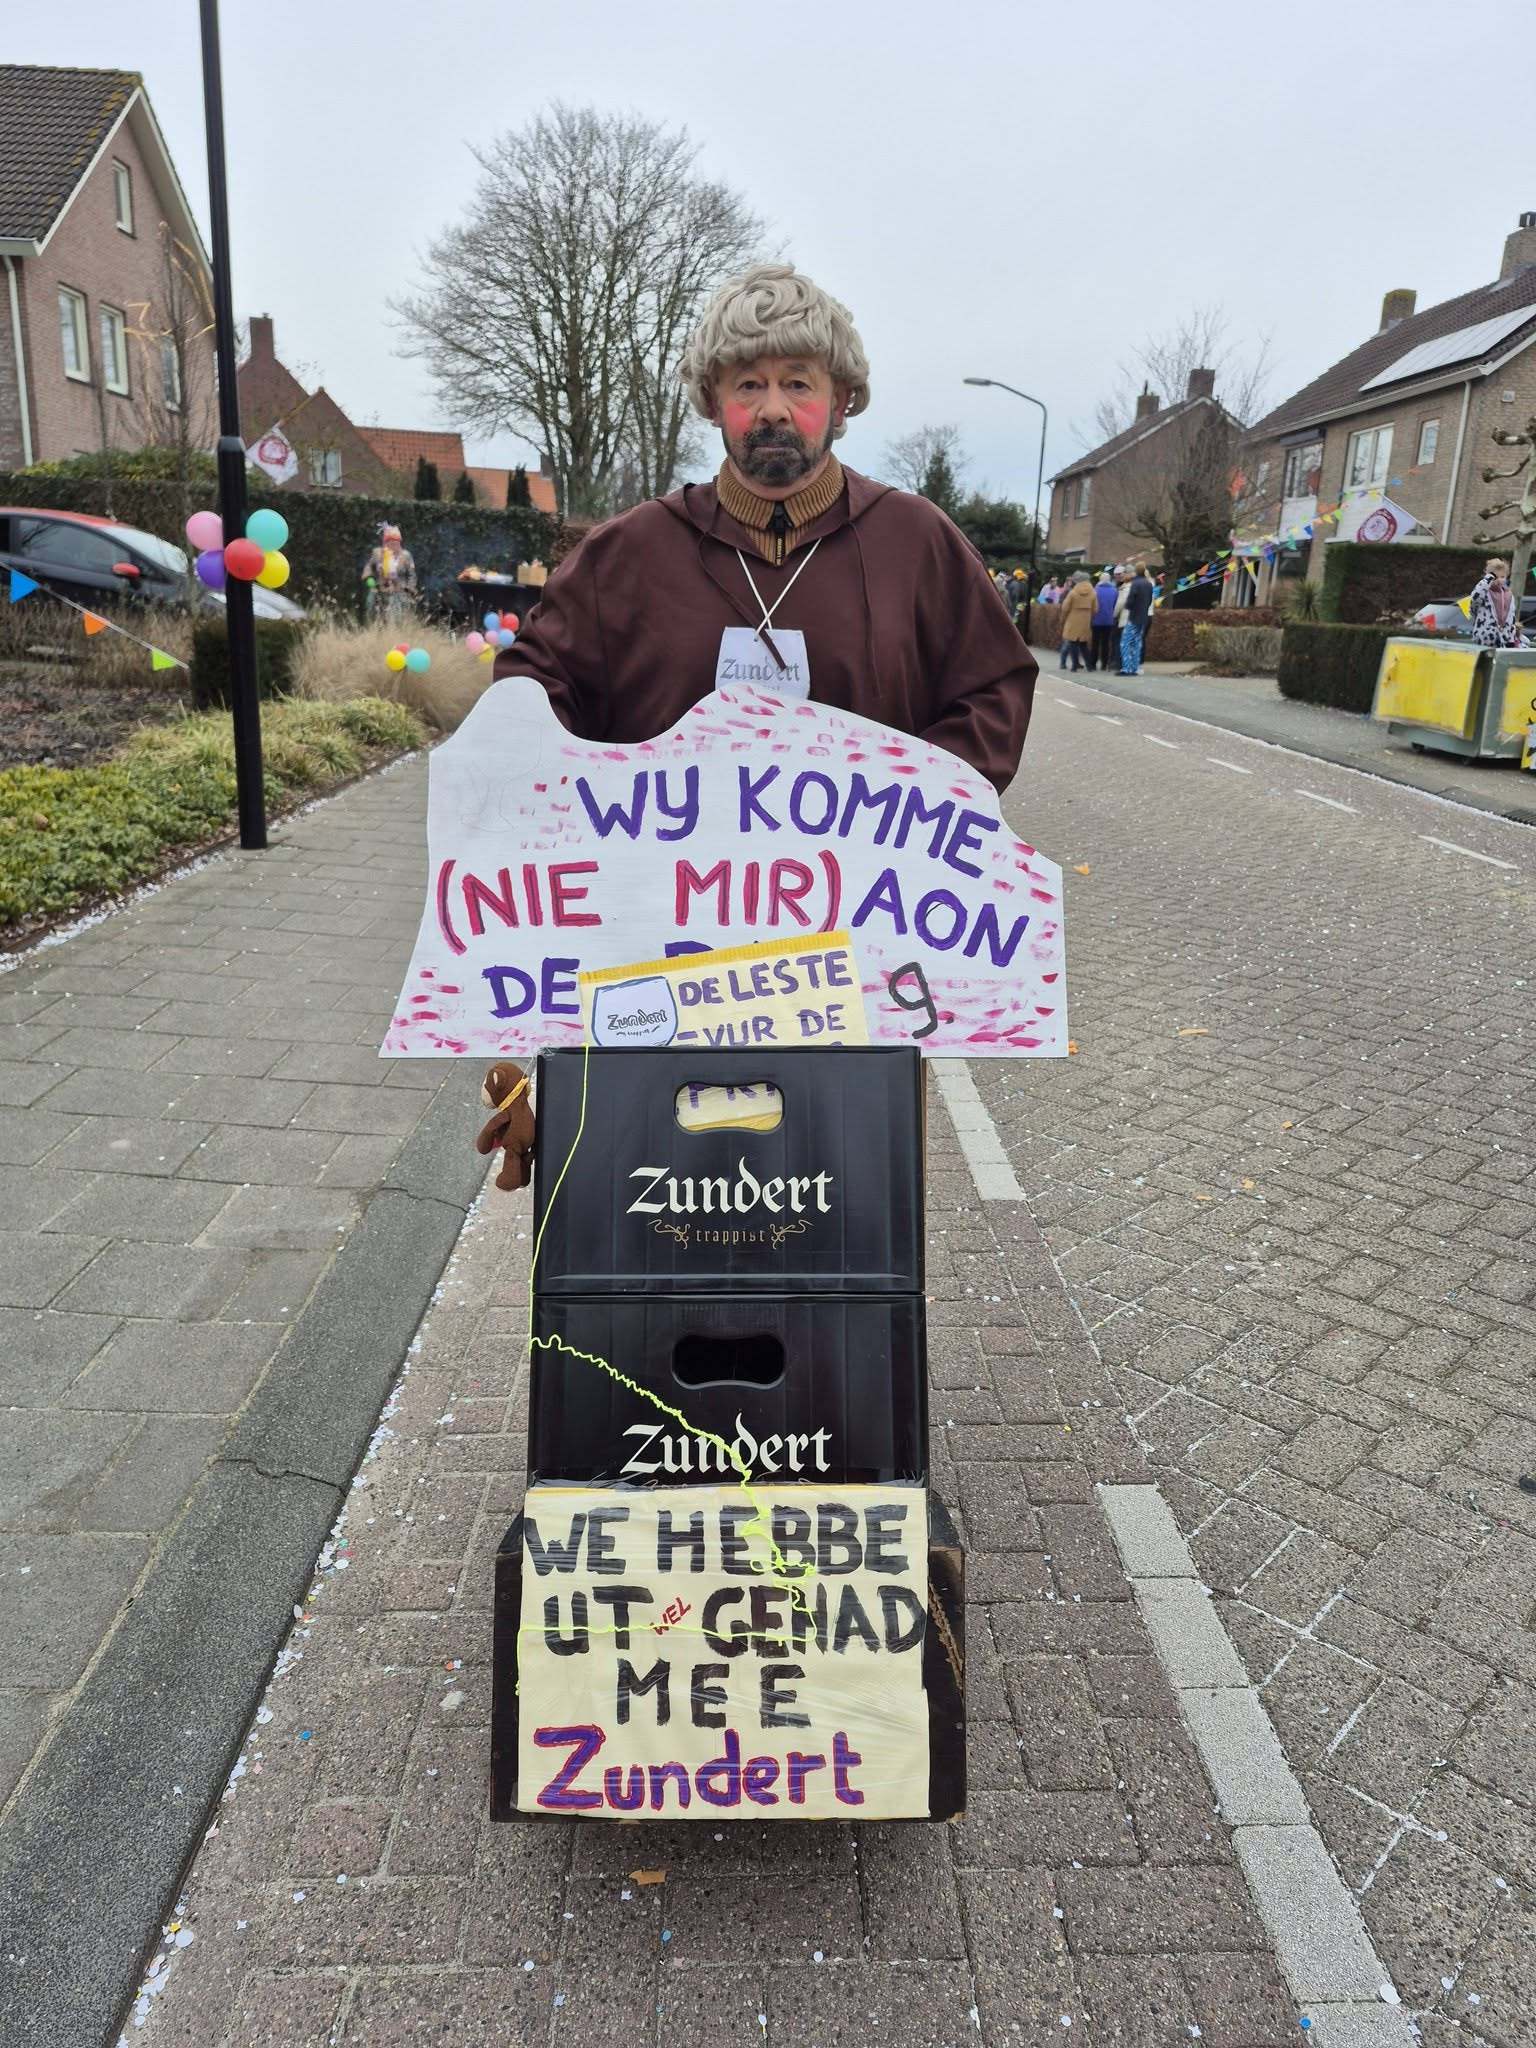 Zundert
WY KOMME
(NIE MIR) AON
DE g.
DE LESTE
Zundert
trappist
- VUR DE
Zundert
trappist
Zundert
WE HEBBE
UT WEL GEHAD
MEE
Zundert